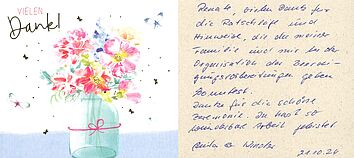 VIELEN
Danke!
Renate, vielen Dank für
die Ratschläge und
Hinweise, die du meiner
Familie und mir bei der
Organisation der Beerdi-
gungsvorbereitungen geben
konntest.
Danke für die schöne
Zeremonie. Du hast so
wunderbare Arbeit geleistet
21.10.24